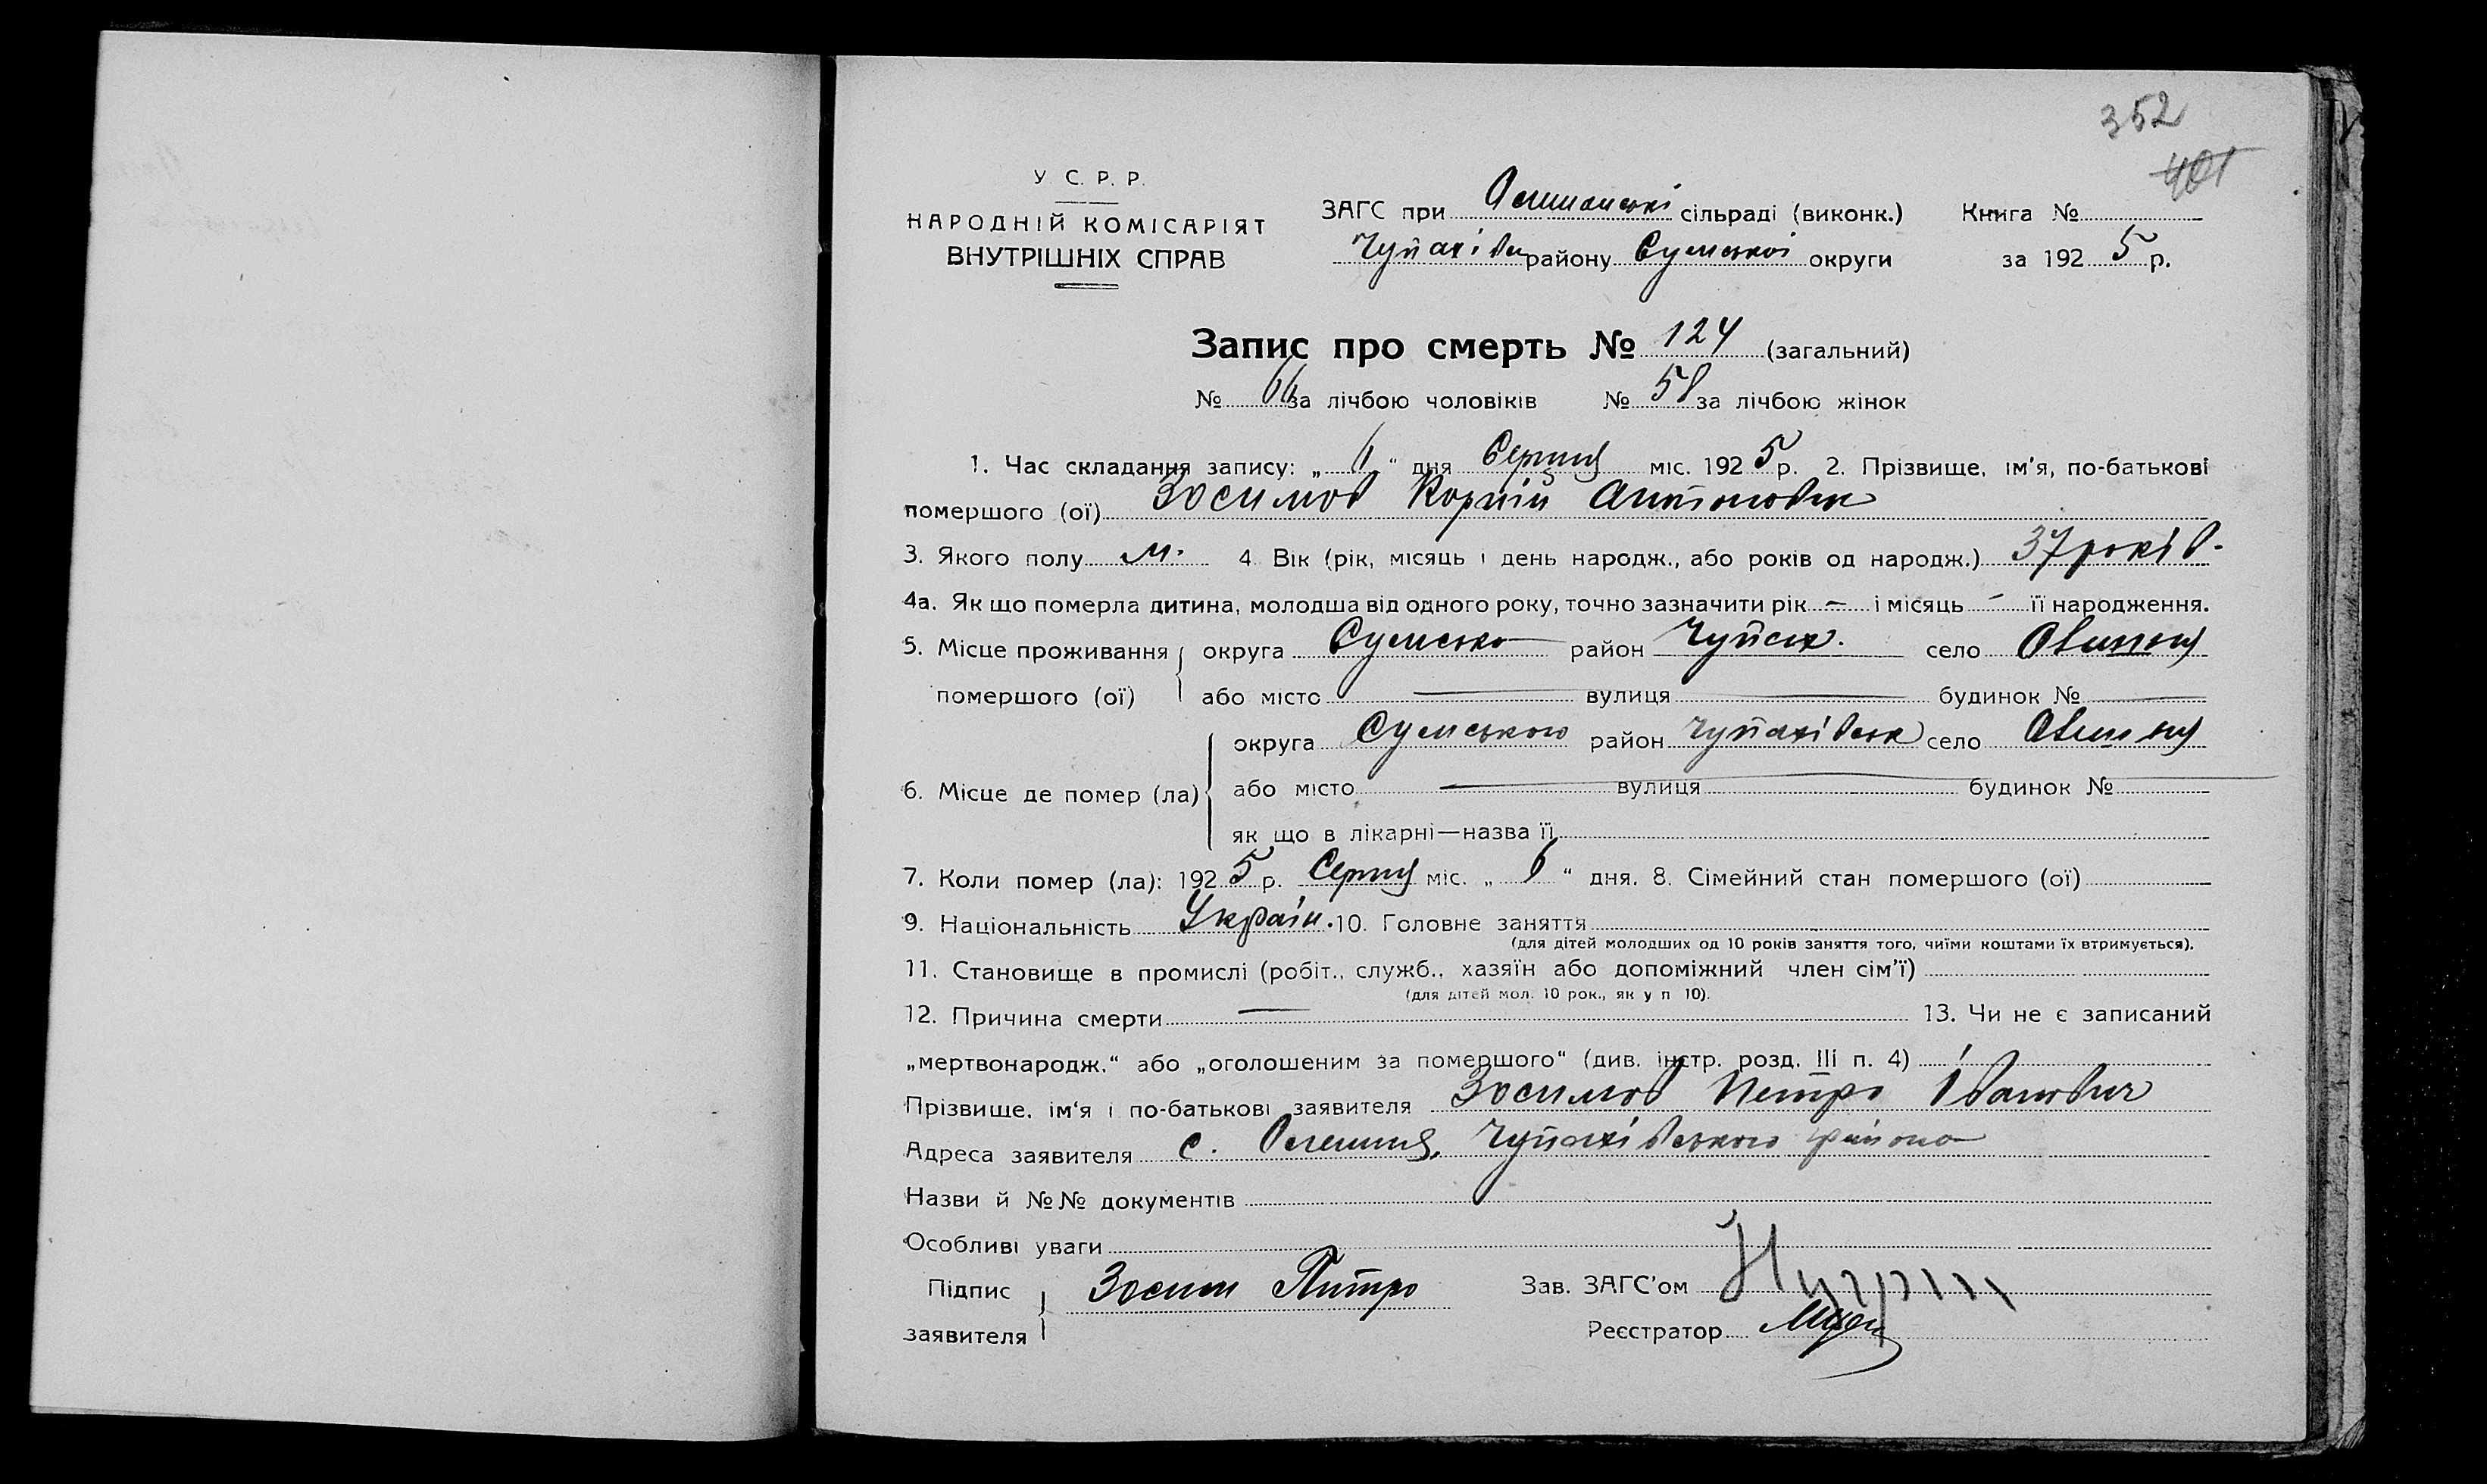 352
401
У. С. Р. Р.
НАРОДНІЙ КОМІСАРІЯТ
ВНУТРІШНІХ СПРАВ
ЗАГС при сільраді (виконк.) Книга №
Чупахівськ району Сумської округи за 1925 р.
Запис про смерть № 124 (загальний)
№ 66 за лічбою чоловіків № 58 за лічбою жінок
1. Час складання запису: „6“ дня Серпня міс. 1925 р. 2. Прізвище, ім'я, по-батькові
помершого (ої) Зосимов Корній Антонович
3. Якого полу м. 4. Вік (рік, місяць і день народж., або років од народж.) 37 років.
4а. Як що померла дитина, молодша від одного року, точно зазначити рік — і місяць — її народження.
5. Місце проживання округа Сумсько район Чупах. село
помершого (ої) або місто — вулиця — будинок № —
округа Сумською район Чупахівськ село
6. Місце де помер (ла) або місто — вулиця будинок №
як що в лікарні—назва її
7. Коли помер (ла): 1925 р. Серпня міс. „6“ дня. 8. Сімейний стан помершого (ої)
9. Національність Україн. 10. Головне заняття
(для дітей молодших од 10 років заняття того, чиїми коштами їх втримується).
11. Становище в промислі (робіт., служб., хазяїн або допоміжний член сім'ї)
(для дітей мол. 10 рок., як у п 10).
12. Причина смерти — 13. Чи не є записаний
„мертвонародж.“ або „оголошеним за помершого“ (див. інстр. розд. III п. 4)
Прізвище, ім'я і по-батькові заявителя Зосимов Петро Іванович
Адреса заявителя с. Чупахівського району
Назви й №№ документів
Особливі уваги
Підпис Зосим Питро Зав. ЗАГС'ом
заявителя Реєстратор